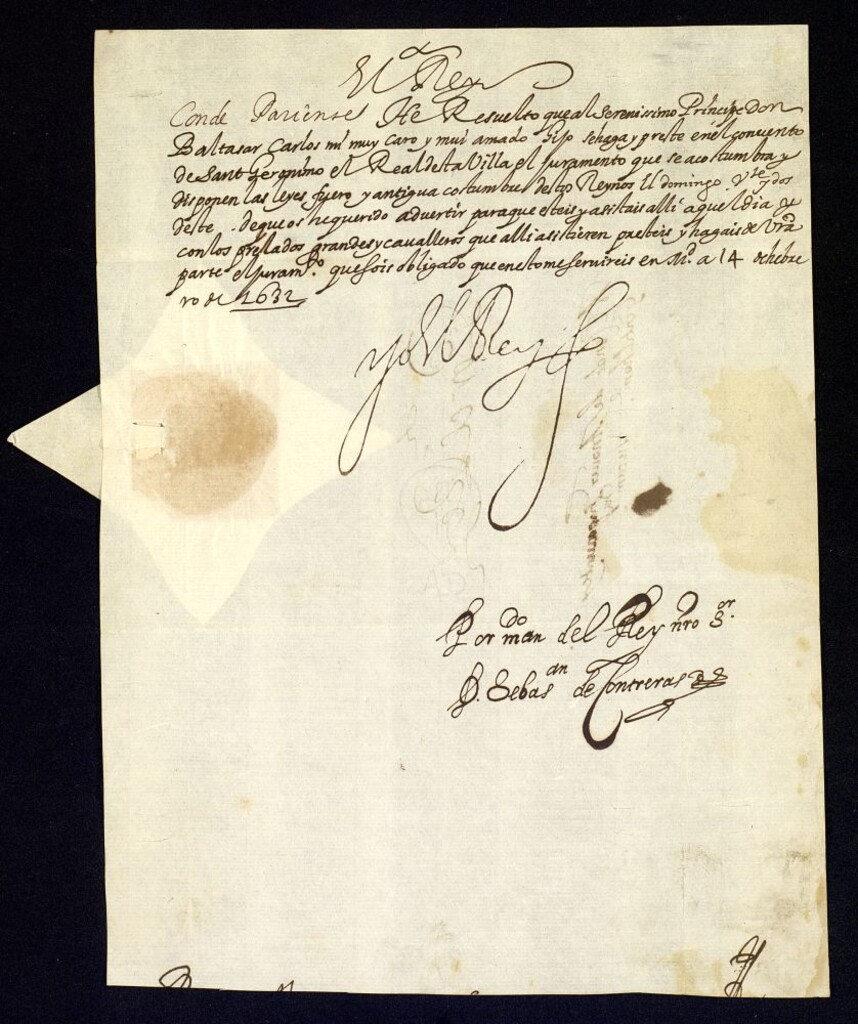 El Rey
Conde Pariente He Resuelto que al Serenissimo Principe Don
Baltasar Carlos mi muy caro y mui amado hijo se haga y preste en el convento
de Sant Geronimo el Real desta Villa el Juramento que se acostumbra y
disponen las leyes fuero y antigua costumbre destos Reynos El domingo Vte y dos
deste. de que os he querido advertir para que esteis y assistais alli aquel dia y
con los prelados grandes y cavalleros que alli asistieren presteis y hagais de vra
parte el juramto que sois obligado que en esto me servireis en Md. a 14 de hebre
ro de 1632
yo el Rey
Por mando del Rey nro Sor.
D. Sebasan de Contreras